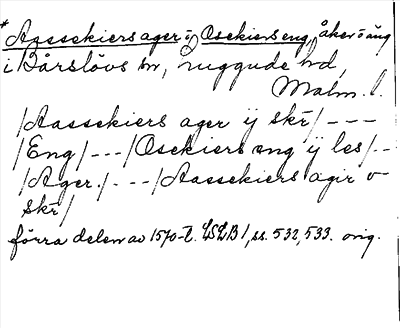 * Aassekiers ager ÿ Osekiers eng, åker o äng
i Bårslövs sn, Luggude hd,
Malm. l.
/Aassekiers ager ÿ skr/ ---
/Eng/ ---/Osekiers eng ÿ les/ --
/Ager./ ---/Aassekiers agir o
skr/
förra delen av 1570-t. LSLB 1, ss. 532, 533. orig.